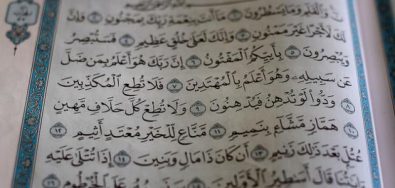 نٓ وَالْقَلَمِ وَمَا يَسْطُرُونَ ١ مَا أَنتَ بِنِعْمَةِ رَبِّكَ بِمَجْنُونٍ ٢ وَإِنَّ
لَكَ لَأَجْرًا غَيْرَ مَمْنُونٍ ٣ وَإِنَّكَ لَعَلَىٰ خُلُقٍ عَظِيمٍ ٤ فَسَتُبْصِرُ
وَيُبْصِرُونَ ٥ بِأَييِّكُمُ الْمَفْتُونُ ٦ إِنَّ رَبَّكَ هُوَ أَعْلَمُ بِمَن ضَلَّ
عَن سَبِيلِهِ وَهُوَ أَعْلَمُ بِالْمُهْتَدِينَ ٧ فَلَا تُطِعِ الْمُكَذِّبِينَ
٨ وَدُّوا لَوْ تُدْهِنُ فَيُدْهِنُونَ ٩ وَلَا تُطِعْ كُلَّ حَلَّافٍ مَّهِينٍ
١٠ هَمَّازٍ مَّشَّاءٍ بِنَمِيمٍ ١١ مَّنَّاعٍ لِّلْخَيْرِ مُعْتَدٍ أَثِيمٍ ١٢
عُتُلٍّ بَعْدَ ذَٰلِكَ زَنِيمٍ ١٣ أَن كَانَ ذَا مَالٍ وَبَنِينَ ١٤ إِذَا تُتْلَىٰ عَلَيْهِ
أَسَاطِيرُ الْأَوَّلِينَ ١٥ عَلَى الْخُرْطُومِ ١٦